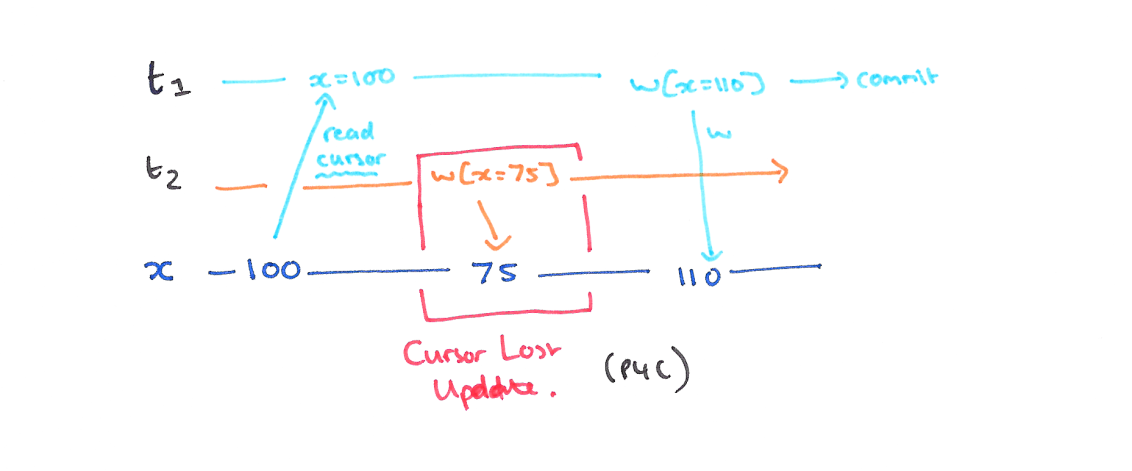 t1 x=100 w[x=110] commit
read
cursor
w
t2 w[x=75]
x 100 75 110
Cursor Lost
Update.
(P4C)